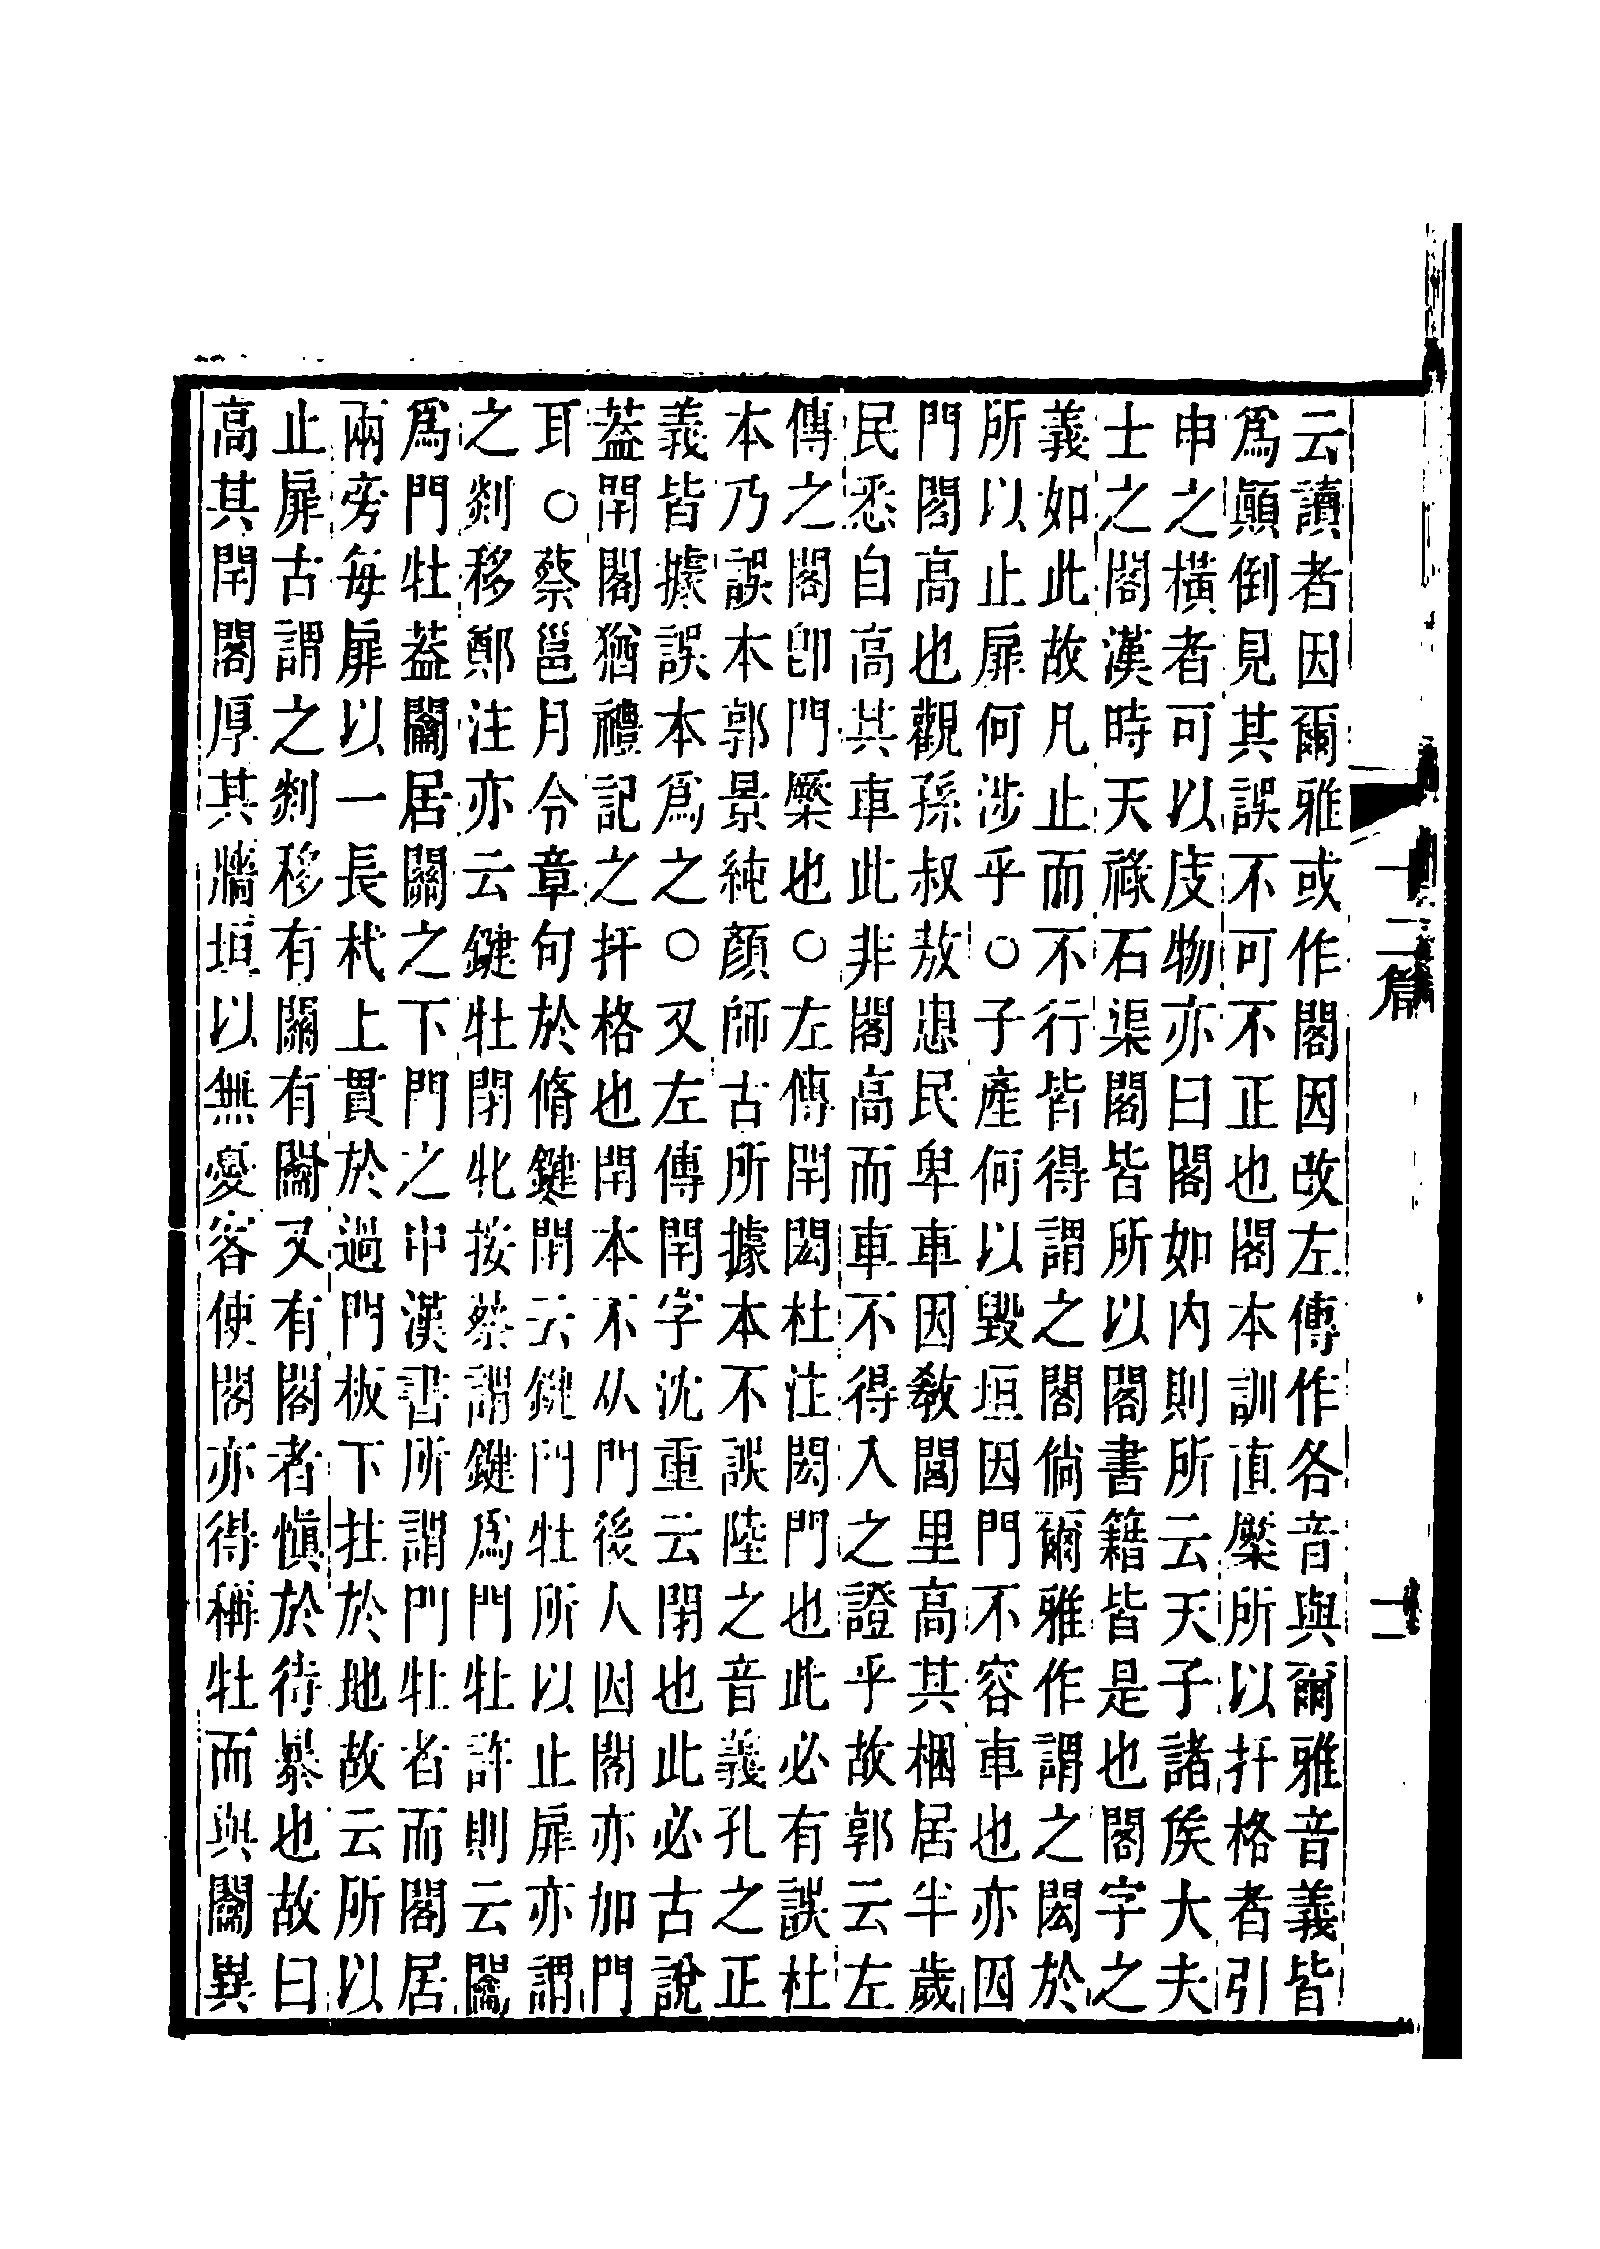 云讀者因爾雅或作閣因改左傳作各音與爾雅音義皆
爲顚倒見其誤不可不正也閣本訓直橜所以扞格者引
申之橫者可以庋物亦曰閣如內則所云天子諸矦大夫
士之閣漢時天祿石渠閣皆所以閣書籍皆是也閣字之
義如此故凡止而不行皆得謂之閣倘爾雅作謂之閎於
所以止扉何涉乎○子產何以毀垣因門不容車也亦因
門閣高也觀孫叔敖患民卑車因敎閭里高其梱居半歲
民悉自高其車此非閣高而車不得入之證乎故郭云左
傳之閣卽門橜也○左傳閈閎杜注閎門也此必有誤杜
本乃誤本郭景純顏師古所據本不誤陸之音義孔之正
義皆據誤本爲之○又左傳閈字沈重云閉也此必古說
葢閈閣猶禮記之扞格也閈本不从門後人因閣亦加門
耳○蔡邕月令章句於脩鍵閉云鍵門牡所以止扉亦謂
之剡移鄭注亦云鍵牡閉牝按蔡謂鍵爲門牡許則云闟
爲門牡葢闟居關之下門之中漢書所謂門牡者而閣居
兩旁每扉以一長杙上貫於過門板下拄於地故云所以
止扉古謂之剡移有關有闟又有閣者愼於待暴也故曰
高其閈閣厚其牆垣以無憂客使閣亦得稱牡而與闟異
十二篇
十二